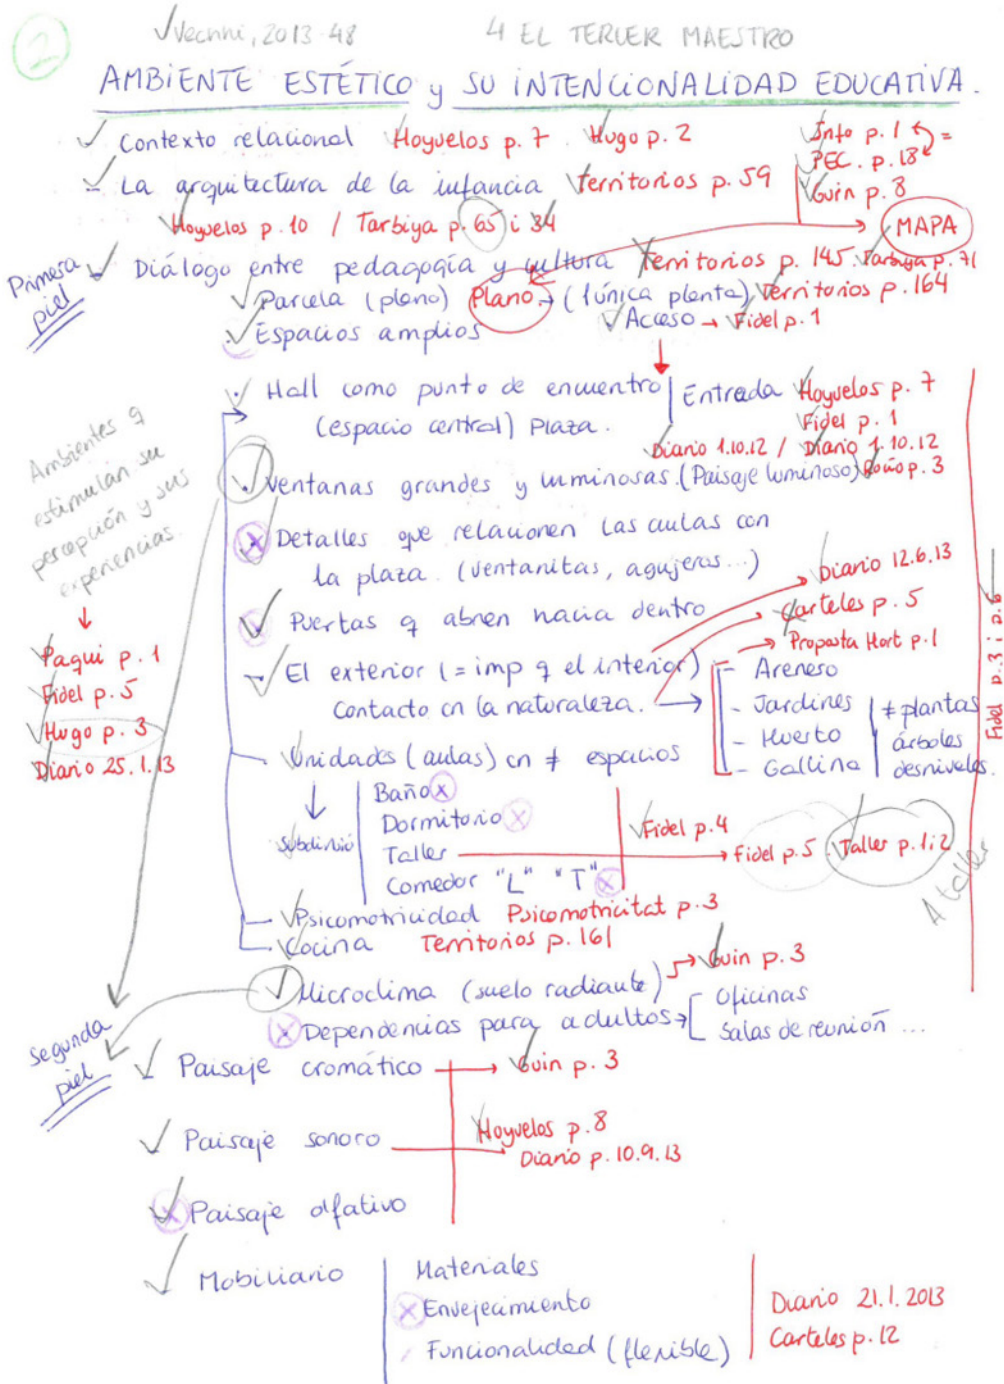 2
Vecchi, 2013:48
4 EL TERCER MAESTRO
AMBIENTE ESTÉTICO y SU INTENCIONALIDAD EDUCATIVA.
Contexto relacional Hoyuelos p. 7 Hugo p. 2
Info p. 1 =
PEC. p. 18
Guin p. 8
- La arquitectura de la infancia Territorios p. 59
Hoyuelos p. 10 / Tarbiya p. 65 i 34
MAPA
Primera piel
Diálogo entre pedagogía y cultura Territorios p. 145 Tarbiya p. 71
Parcela (plano) Plano → (1 única planta) Territorios p. 164
Acceso → Fidel p. 1
Espacios amplios
Hall como punto de encuentro | Entrada Hoyuelos p. 7
(espacio central) Plaza. Fidel p. 1
Diario 1.10.12 / Diario 1.10.12
Ventanas grandes y luminosas. (Paisaje luminoso) p. 3
Detalles que relacionen las aulas con
la plaza. (ventanitas, agujeros...)
Puertas q abren hacia dentro
- El exterior (= imp q el interior)
Contacto cn la naturaleza. →
Diario 12.6.13
Carteles p. 5
Proposta Hort p. 1
- Areneso
- Jardines
- Huerto
- Gallina
≠ plantas
árboles
desniveles.
Fidel p. 3 i p. 6
Ambientes q
estimulán su
percepción y sus
experiencias.
Paqui p. 1
Fidel p. 5
Hugo p. 3
Diario 25.1.13
- Unidades (aulas) cn ≠ espacios
Subdivisió
Baño
Dormitorio
Taller
Comedor "L" "T"
Fidel p. 4
Fidel p. 5 Taller p. 1 i 2
A taller
- Psicomotricidad Psicomotricitat p. 3
- Cocina Territorios p. 161
Microclima (suelo radiante) → Guin p. 3
Dependencias para adultos →
Oficinas
Salas de reunión ...
Segunda piel
Paisaje cromático → Guin p. 3
Paisaje sonoro Hoyuelos p. 8
Diario p. 10.9.13
Paisaje olfativo
Mobiliario
Materiales
Envejecimiento
Funcionalidad (flexible)
Diario 21.1.2013
Carteles p. 12